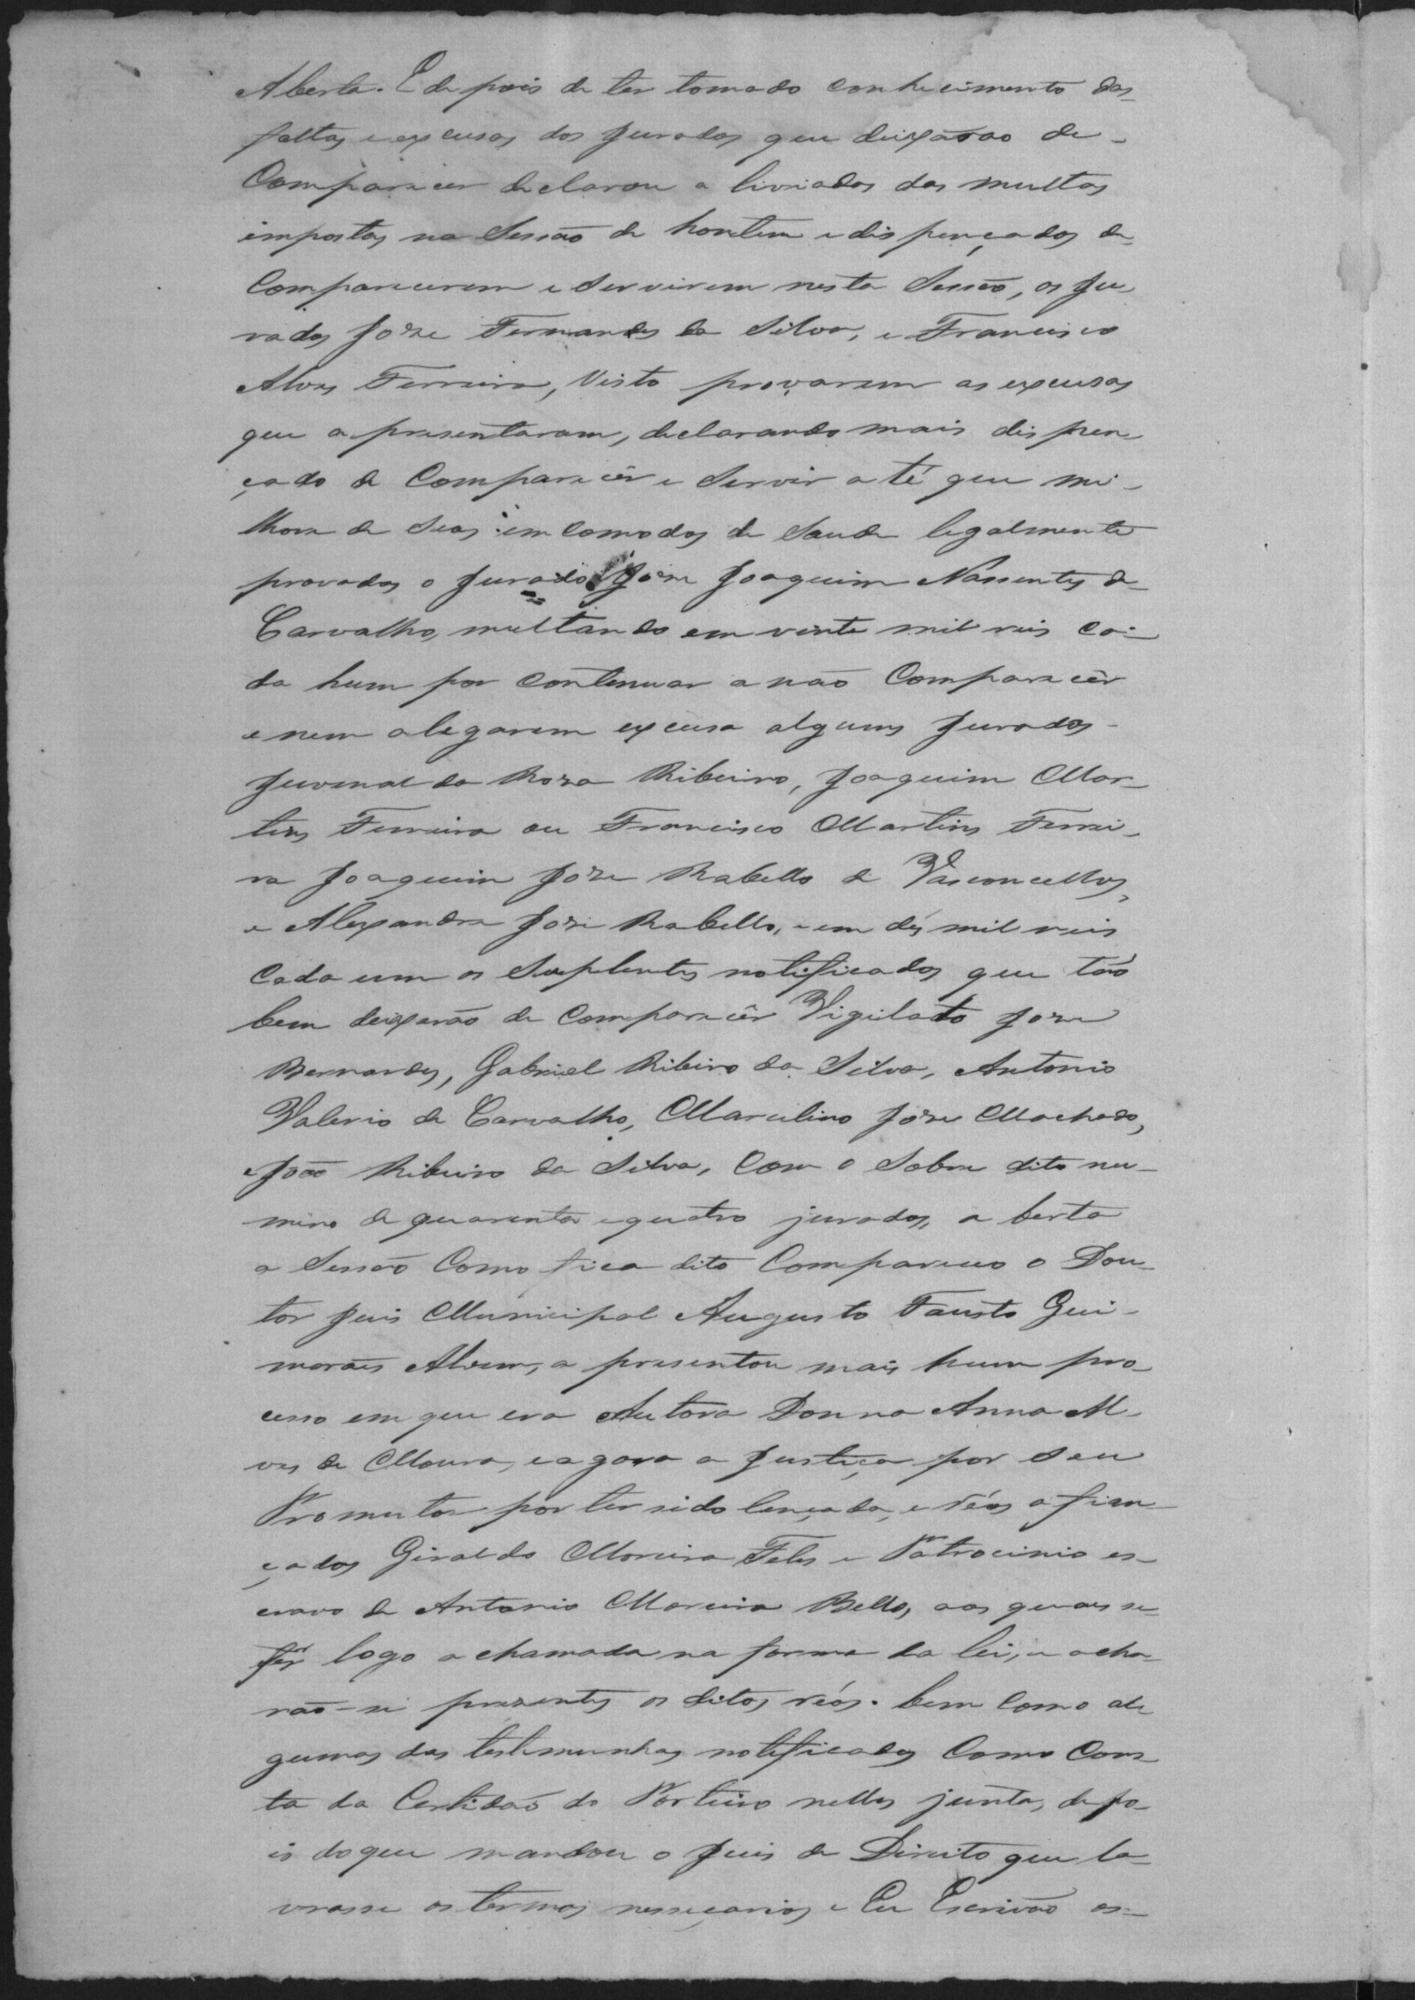 Aberta. E de pois de ter tomado conhecimento das
faltas e excusas dos Jurados que deixarao de
Comparecer declarou a liviados das multas
impostas na Sessão de hontem e dispençados de
Comparecerem e Servirem nesta Sessão, os Ju
rados Joze Fernandes da Silva, e Francisco
Alves Ferreira, Visto provarem as excusas
que apresentaram, declarando mais dispen
çado de Comparecêr e Servir a té que mi-
lhore de Seos incomodos de Saude legalmente
provados o Jurado Joze Joaquim Nassentes de
Carvalho, multando em vinte mil reis ca-
da hum por continuar a não Comparecêr
e nem alegarem excusa alguns Jurados
Juvenal da Roza Ribeiro, Joaquim Mar-
tins Ferreira ou Francisco Martins Ferrei-
ra Joaquim Joze Rabello de Vasconcellos,
e Alexandre Joze Rabello, e em dés mil reis
Cada um os Suplentes notificados que tão
bem deixarão de comparecêr Vigilato Joze
Bernardes, Gabriel Ribeiro da Silva, Antonio
Valerio de Carvalho, Marculino Joze Machado,
e João Ribeiro da Silva, Com o Sobre dito nu-
mero de quarenta e quatro jurados, a berta
a Sessão Como fica dito Compareceo o Dou-
tor Juis Municipal Augusto Fausto Gui-
marães Alvim, a presentou mais hum pro
cesso em que era Autora Donna Anna Al-
ves de Moura, e agora a Justiça por seu
Promutor por ter sido lançada, e réos afian
çados Giraldo Moreira Teles e Patrocinio es-
cravo de Antonio Moreira Bello, aos quais se
fez logo a chamada na forma da lei, e acha-
rão-se prezentes os ditos réos. bem como al
gumas das testemunhas notificadas Como Cons
ta da Certidaõ do Porteiro nelles junta, depo-
is do que mandou o Juis de Direito que la-
vrasse os termos nesseçarios e Eu Escrivão es-